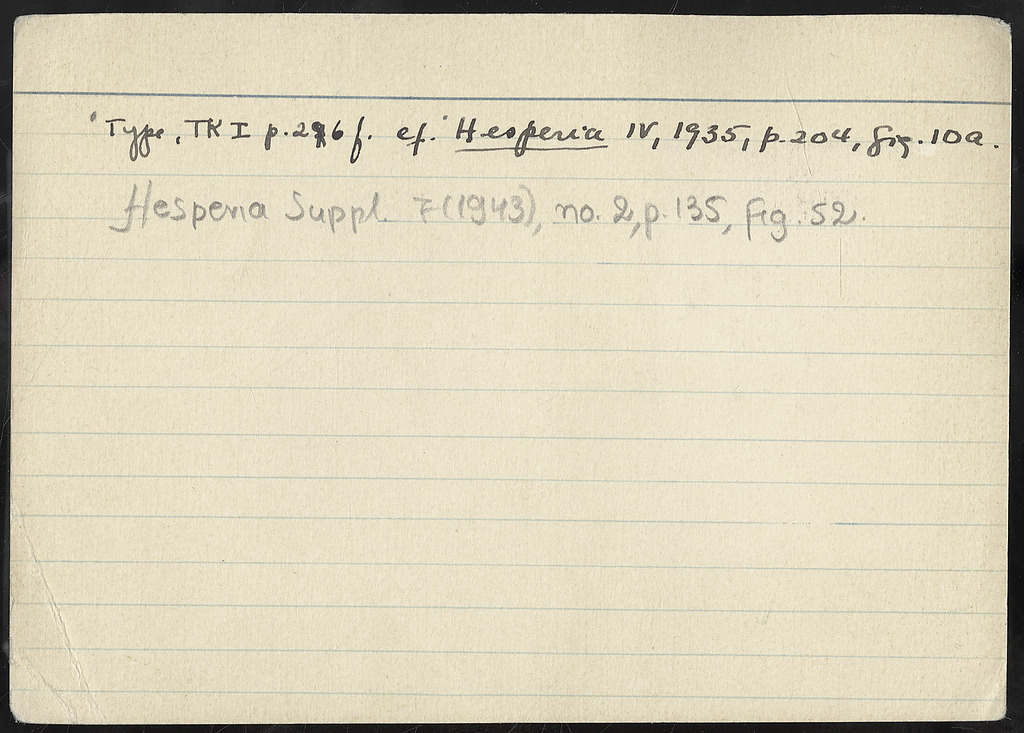 Type, TK I p. 296 f. cf. Hesperia IV, 1935, p. 204, fig. 10a.
Hesperia Suppl. 7 (1943), no. 2, p. 135, fig. 52.